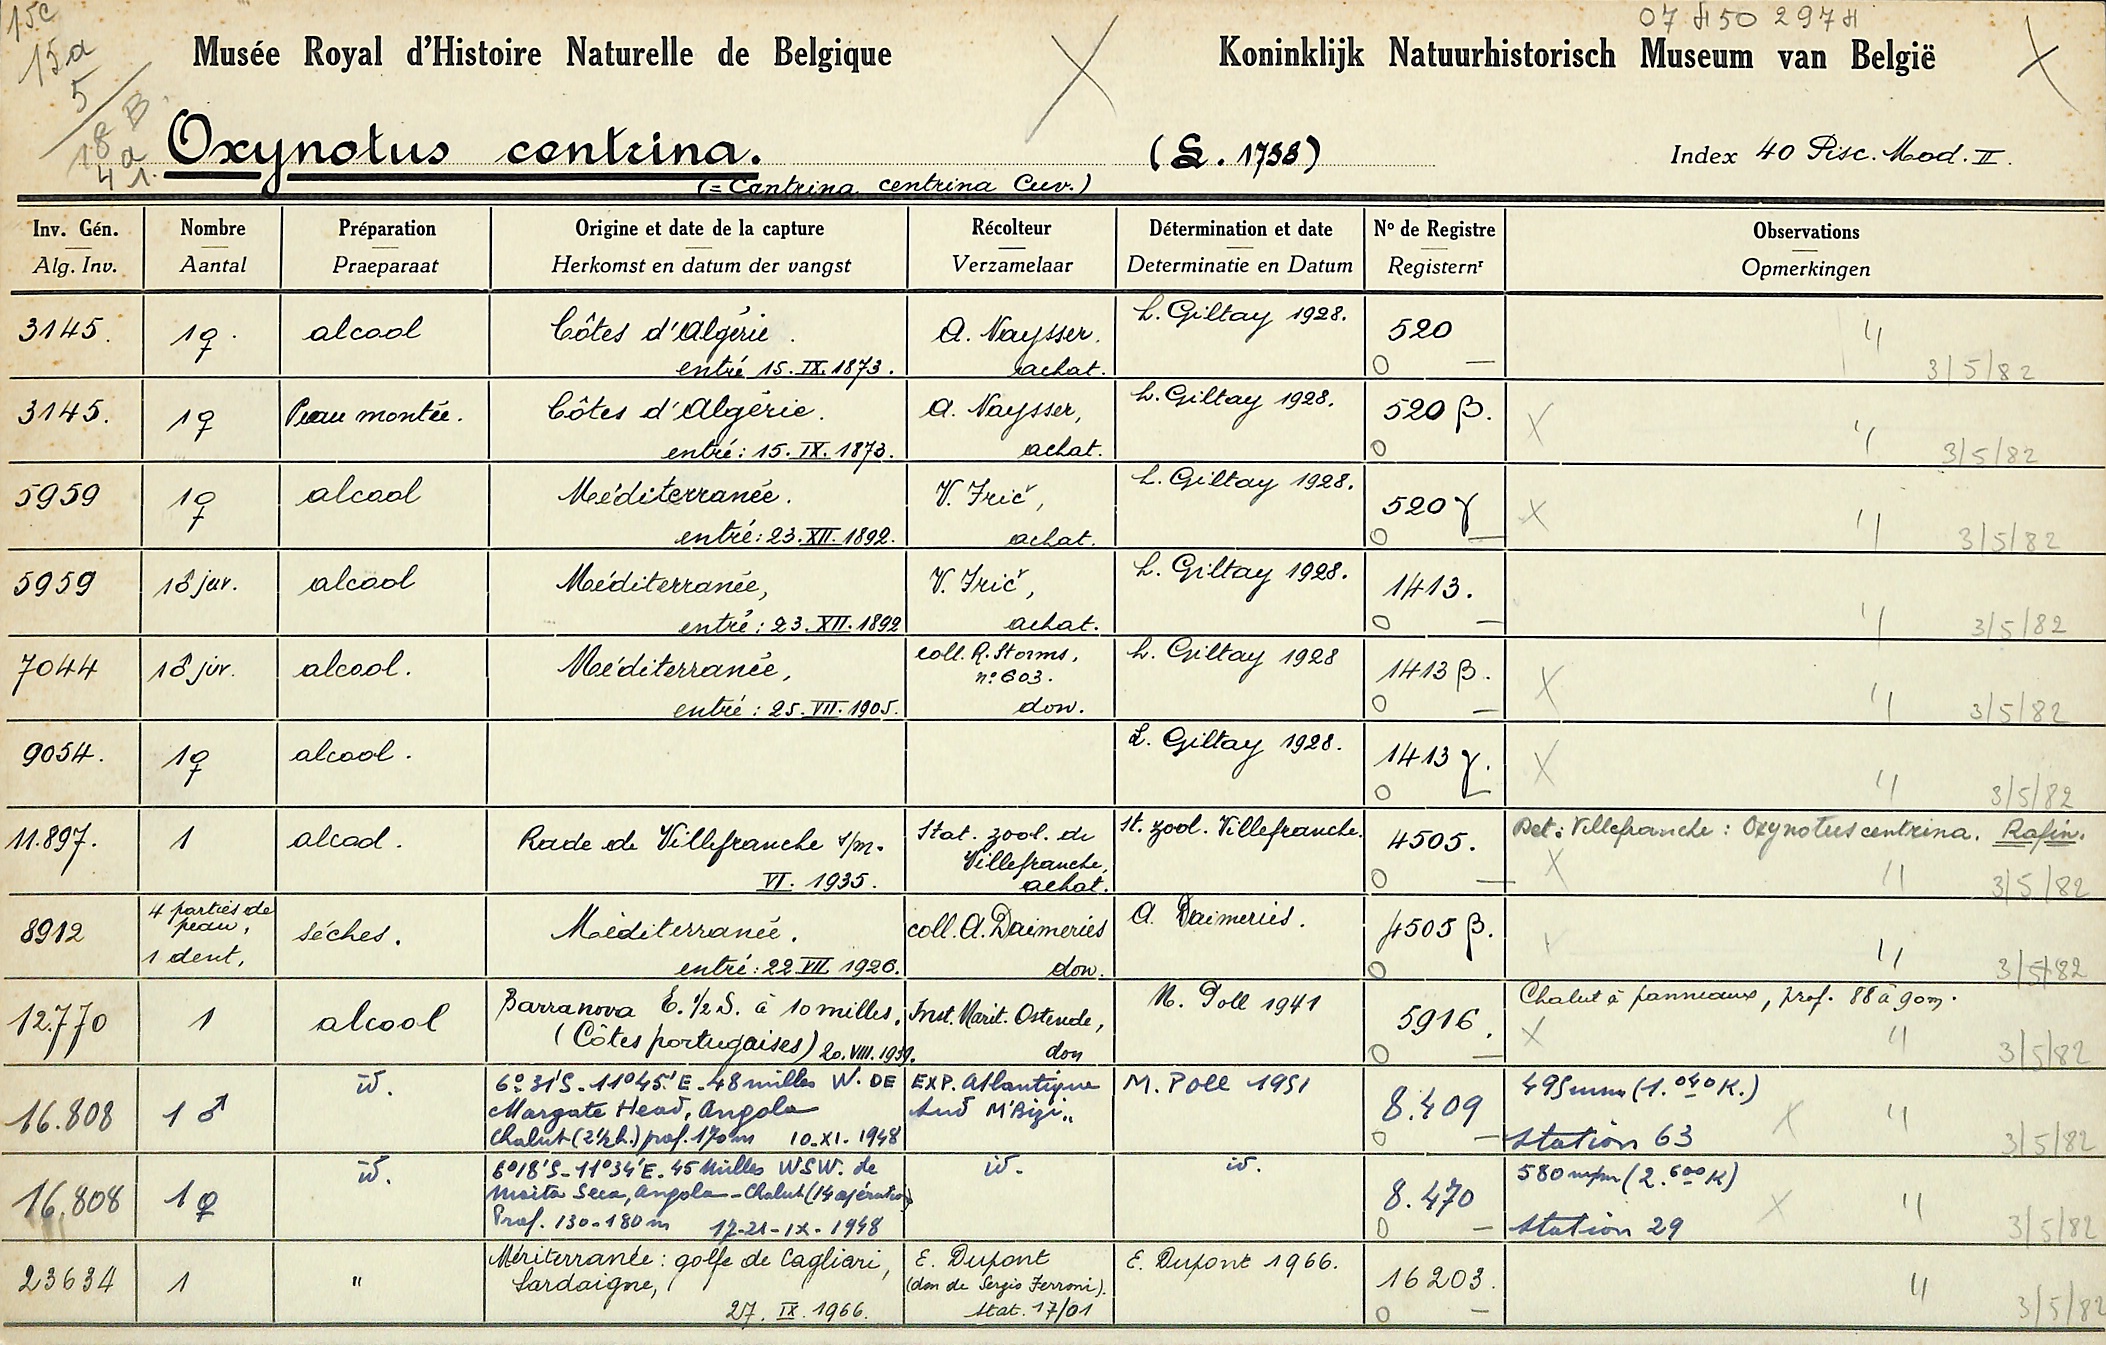 15c
15a
5
18 B
4 a
1.
07 450 2974
Musée Royal d'Histoire Naturelle de Belgique
Koninklijk Natuurhistorisch Museum van België
Oxynotus centrina. (L. 1758) Index 40 Pisc. Mod. II.
(= Centrina centrina Cuv.)
Inv. Gén. Nombre Préparation Origine et date de la capture Récolteur Détermination et date N° de Registre Observations
Alg. Inv. Aantal Praeparaat Herkomst en datum der vangst Verzamelaar Determinatie en Datum Registernr Opmerkingen
3145. 1♀. alcool Côtes d'Algérie. A. Naysser. L. Giltay 1928. 520 "
entré 15. IX. 1873. achat. 0 — 3/5/82
3145. 1♀ Peau montée. Côtes d'Algérie. A. Naysser, L. Giltay 1928. 520 β. X "
entré : 15. IX. 1873. achat. 0 3/5/82
5959 1♀ alcool Méditerranée. V. Frič, L. Giltay 1928. 520 γ X "
entré : 23. XII. 1892. achat. 0 — 3/5/82
5959 1♂ juv. alcool Méditerranée, V. Frič, L. Giltay 1928. 1413. "
entré : 23. XII. 1892 achat. 0 — 3/5/82
7044 1♂ juv. alcool. Méditerranée, coll. R. Storms, L. Giltay 1928 1413 β. X "
n° 603.
entré : 25. VII. 1905. don. 0 — 3/5/82
9054. 1♀ alcool. L. Giltay 1928. 1413 γ. X "
0 — 3/5/82
11.897. 1 alcool. Rade de Villefranche s/m. Stat. zool. de St. zool. Villefranche. 4505. Det : Villefranche : Oxynotus centrina. Rafin.
Villefranche, X "
VI. 1935. achat. 0 — 3/5/82
8912 4 parties de peau, 1 dent, séches. Méditerranée. coll. A. Daimeriés A. Daimeriés. 4505 β. "
entré : 22. VII. 1926. don. 0 3/5/82
12.770 1 alcool Barranova E. 1/2 S. à 10 milles. Inst. Marit. Ostende, M. Poll 1941 5916. Chalut à panneaux, prof. 88 à 90m.
(Côtes portugaises) 20. VIII. 1939. don 0 — X " 3/5/82
16.808 1 ♂ id. 6° 31'S - 11° 45' E - 48 milles W. DE EXP. Atlantique M. Poll 1951 8.409 495mm (1.040 K.)
Margate Head, Angola Sud M'Bizi" X "
Chalut (2½h.) prof. 170m 10-XI-1948 0 — Station 63 3/5/82
16.808 1♀ id. 6°18'S - 11°34'E - 45 Milles WSW. de id. id. 8.470 580 m/m (2.600 K)
Moita Seca, Angola - Chalut (14 opérations) X "
Prof. 130-180m 17-21-IX-1948 0 — Station 29 3/5/82
23634 1 " Mériterranée : golfe de Cagliari, E. Dupont E. Dupont 1966. 16203.
Sardaigne, (don de Sergio Ferroni). "
27. IX. 1966. Stat. 17/01 0 — 3/5/82